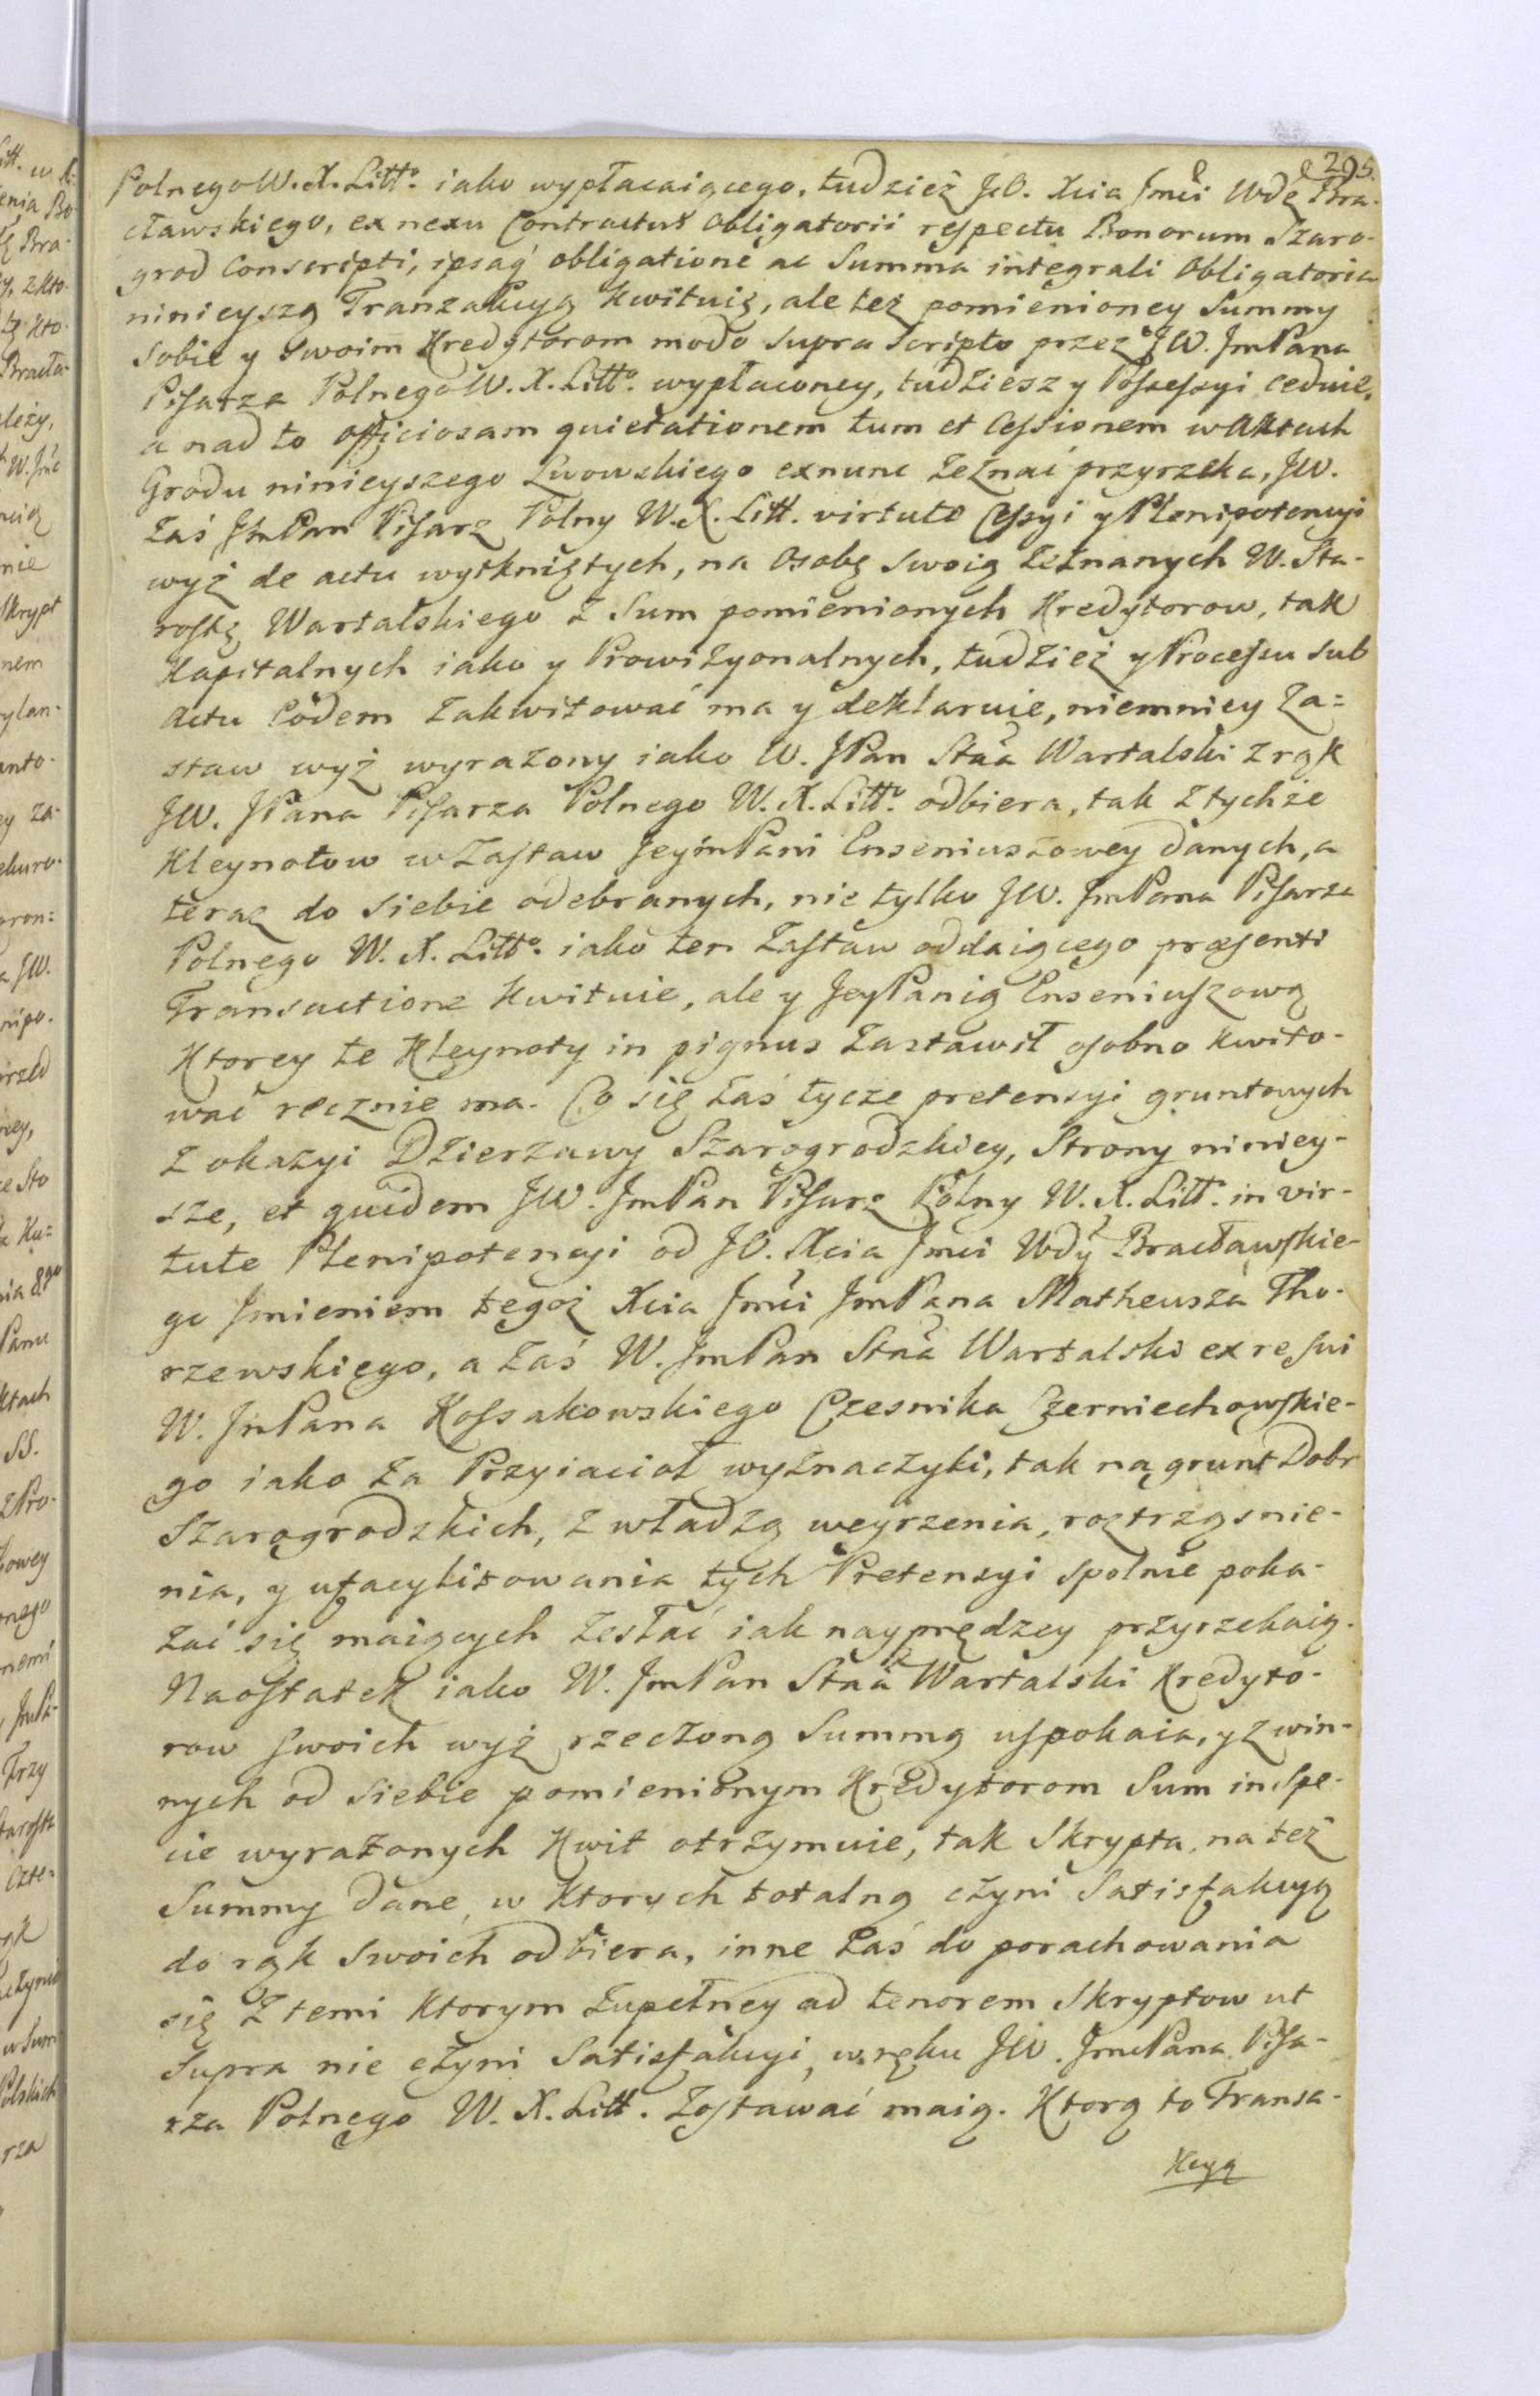 295.
Polnego W. X. Litto. iako wypłacaiącego, tudzież JO. Xcia Jmći Wdę Bra-
cławskiego, ex nexu Contractus Obligatorii respectu Bonorum Szaro-
grod Conscripti, ipsaq obligatione ac Summa integrali Obligatoria
ninieyszą Tranzakcyą kwituię, ale też pomienioney Summy
sobie y swoim Kredytorom modo supra scripto przez JW. JmPana
Pisarza Polnego W. X. Litto. wypłaconey, tudziesz y Possessyi ceduie,
a nad to officiosam quietationem tum et Cessionem w Aktach
Grodu ninieyszego Lwowskiego exnunc zeznać przyrzeka, JW.
zaś JmPan Pisarz Polny W. X. Litt. virtute Cessyi y Plenipotencyi
wyż de actu wytkniętych, na Osobę swoię zeznanych W. Sta-
rostę Wartalskiego z Sum pomienionych Kredytorow, tak
Kapitalnych iako y Prowizyonalnych, tudzież y Processu sub
actu Eodem zakwitować ma y deklaruie, niemniey Za=
staw wyż wyrażony iako W. JPan Stta Wartalski z rąk
JW. JPana Pisarza Polnego W. X. Litto. odbiera, tak z tychże
Kleynotow w Zastaw JeymPani Enseniuszowey danych, a
teraz do siebie odebranych, nie tylko JW. JmPana Pisarza
Polnego W. X. Litto. iako ten Zastaw oddaiącego præsenti
Transactione kwituie, ale y JeyPanią Enseniuszową
Ktorey te Kleynoty in pignus zastawił osobno kwito-
wać ręcznie ma. Co się zaś tycze pretensyi gruntowych
z okazyi Dzierzawy Szarogrodzkiey, Strony niniey-
sze, et quidem JW. JmPan Pisarz Polny W. X. Litto. in vir-
tute Plenipotencyi od JO. Xcia Jmći Wdy Bracławskie-
go Jmieniem tegoż Xcia Jmći JmPana Matheusza Tho-
rzewskiego, a zaś W. JmPan Stta Wartalski ex re sui
W. JmPana Kossakowskiego Czesnika Czerniechowskie-
go iako za Przyiacioł wyznaczyli, tak na grunt Dobr
Szarogrodzkich, z władzą weyrzenia, roztrząsnie-
nia, y ufacylitowania tych Pretensyi spolnie poka-
zać się maiących zesłać iak nayprędzey przyrzekaią.
Naostatek iako W. JmPan Stta Wartalski Kredyto-
row swoich wyż rzeczoną Summą uspokaia, y z win-
nych od siebie pomienionym Kredytorom Sum in spe-
cie wyrażonych Kwit otrzymuie, tak Skrypta na też
Summy dane, w Ktorych totalną czyni Satisfakcyą
do rąk swoich odbiera, inne zaś do porachowania
się z temi Ktorym zupełney ad tenorem Skryptow ut
supra nie czyni Satisfakcyi, w ręku JW. JmPana Pisa-
rza Polnego W. X. Litt. Zostawać maią. Ktorą to Transa-
kcyą